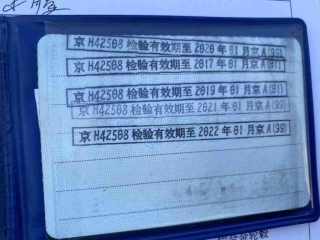 京 H42508 检验有效期至 2020 年 01 月京 A (99)
京 H42508 检验有效期至 2017 年 01 月京 A (01)
京 H42508 检验有效期至 2019 年 01 月京 A (01)
京 H42508 检验有效期至 2021 年 01 月京 A (99)
京 H42508 检验有效期至 2022 年 01 月京 A (99)